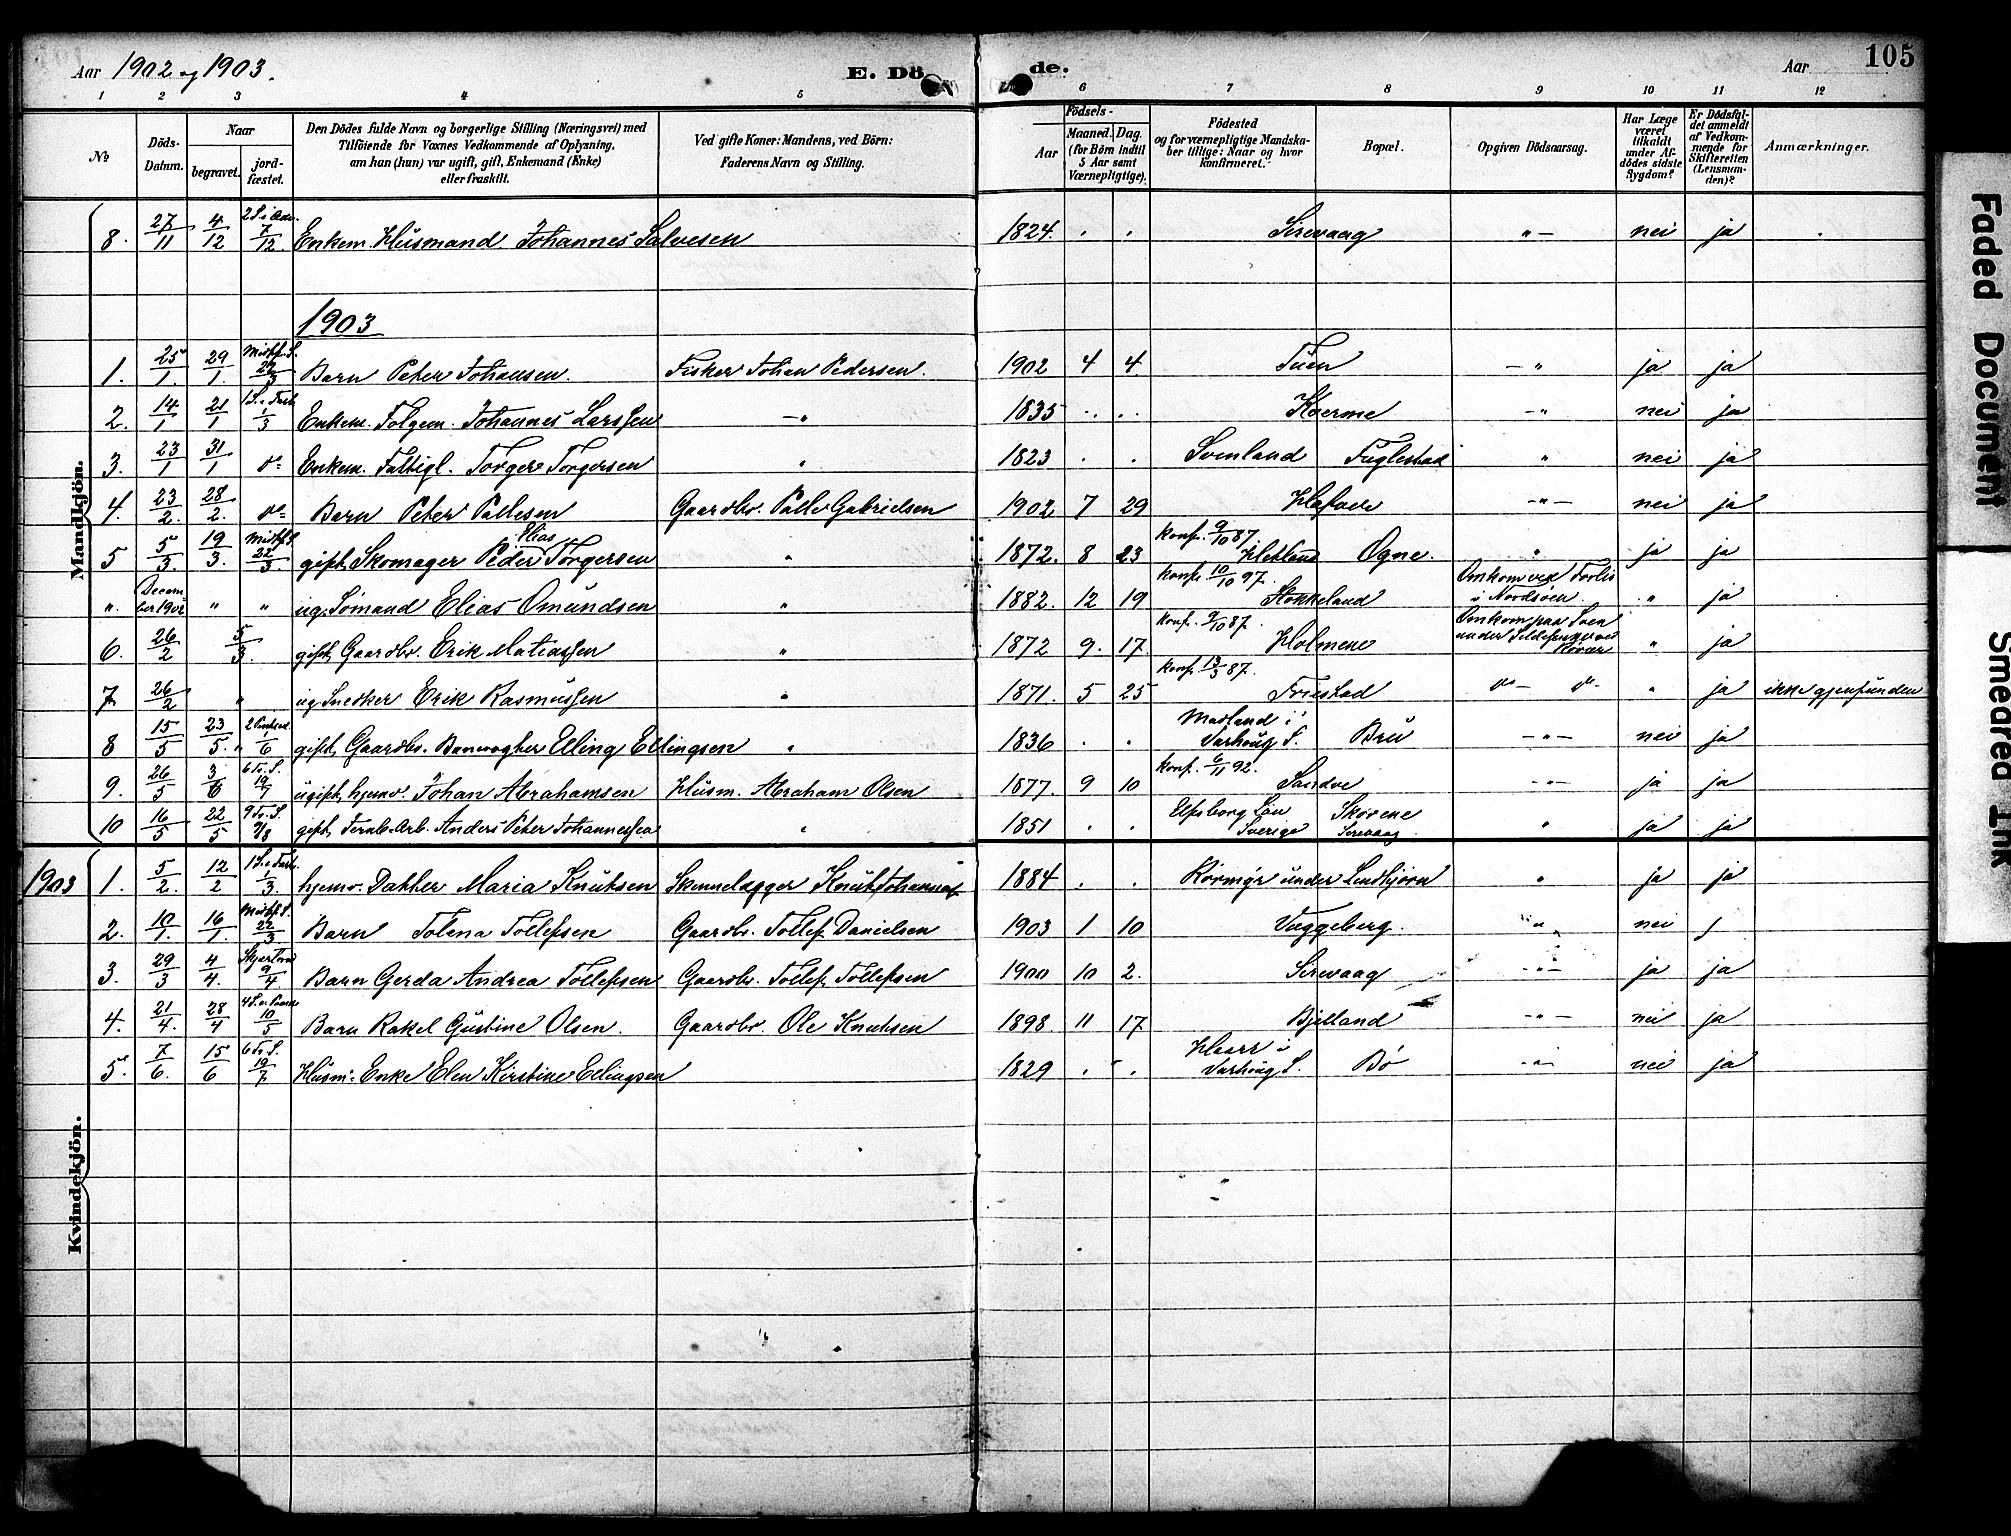 Aar 1902 og 1903.
E. Dö de.
Aar
105
1 2 3 4 5 6 7 8 9 10 11 12
No
Döds-Datum.
Naar
begravet.
jord-fæstet.
Den Dödes fulde Navn og borgerlige Stilling (Næringsvei) med
Tilföiende for Voxnes Vedkommende af Oplysning,
om han (hun) var ugift, gift, Enkemand (Enke)
eller fraskilt.
Ved gifte Koner: Mandens, ved Börn:
Faderens Navn og Stilling.
Födsels-
Aar
Maaned. Dag.
(for Börn indtil
5 Aar samt
Værnepligtige).
Födested
og for værnepligtige Mandska-
ber tillige: Naar og hvor
konfirmeret.
Bopæl.
Opgiven Dödsaarsag.
Har Læge
været
tilkaldt
under Af-
dödes sidste
Sygdom?
Er Dödsfal-
det anmeldt
af Vedkom-
mende for
Skifteretten
(Lensman-
den)?
Anmærkninger.
Mandkjön.
8. 27/11 4/12 2 S. i Adv. 7/12 Enkem. Husmand Johannes Salvesen 1824 . . Sirevaag " – nei ja
1903
1. 25/1. 29/1. Midtf. S. 22/3 Barn Peter Johansen. Fisker Johan Pedersen. 1902 4 4. Tuen – " ja ja
2. 14/1 21/1 1 S. i Fast. 1/3 Enkem. Folgem. Johannes Larssen – " 1835 . . Kverme – " nei ja
3. 23/1 31/1 do Enkem. Fattigl. Torger Torgersen " 1823 . . Svenland Fuglestad " nei ja
4. 23/2. 28/2. do Barn Peter Pallesen Gaardbr. Palle Gabrielsen 1902 7 29 – " – nei ja
5 5/3. 19/3. Midtf. S. 22/3. gift Skomager Peder Elias Torgersen " 1872. 8 23 Konf. 9/10 87. Hetland Ogne. " ja ja
". Decem-ber 1902 " " ug. Sömand Elias Omundsen " 1882. 12 19 Konf. 10/10 97. Stokkeland Omkom ved Forlis i Nordsöen. " ja
6. 26/2 5/3. gift Gaardbr. Erik Matiassen " 1872 9. 17. Konf. 9/10 87. Holmene Omkom paa Söen under Sildefiskeri ved " ja
7. 26/2 " ug Snedker Erik Rasmussen " 1871. 5 25 Konf. 13/3 87. Friestad do – do – " ja ikke gjenfunden
8 15/5 23/5. 6 gift, Gaardbr. Banevogter Elling Ellingsen " 1836 . . Madland i Varhoug S. Bru – " – nei ja
9. 26/5 3/6 6 Tr. S. 19/7 ugift, hjemv. Johan Abrahamsen Husm. Abraham Olsen 1877. 9 10 Konf. 6/11 92. Sandve – " – ja ja
10 16/5 22/5 9 Tr. S. 9/8 gift, Jernb. Arb. Anders Peter Johannessen " 1851 . . Elfsborg Län Sverige Sirevaag " ja ja
1903
Kvindekjön.
1. 5/2. 12/2 1 S. i Fast. 1/3. hjemv. Datter Maria Knutsen Skinnelægger Knut Johannesen 1884 . . under Lindbjörn " ja ja
2. 10/1. 16/1. Midtf. S. 22/3 Barn Tolena Tollefsen Gaardbr. Tollef Danielsen 1903 1 10 Vuggeberg. " " nei j
3. 29/3 4/4. Skjærtorsd 9/4 Barn Gerda Andrea Tollefsen Gaardbr. Tollef Tollefsen 1900 10 2. Sirevaag – " – ja ja
4. 21/4. 28/4 10/5 Barn Rakel Gustine Olsen. Gaardbr. Ole Knutsen 1898. 11 17. Bjelland – " – nei ja
5. 7/6. 15/6 6 Tr. S. 19/7 Husm. Enke Elen Kirstine Ellingsen 1829 . . Haarr i Varhoug S. Bø – " – nei ja
Faded Document
Smeared Ink